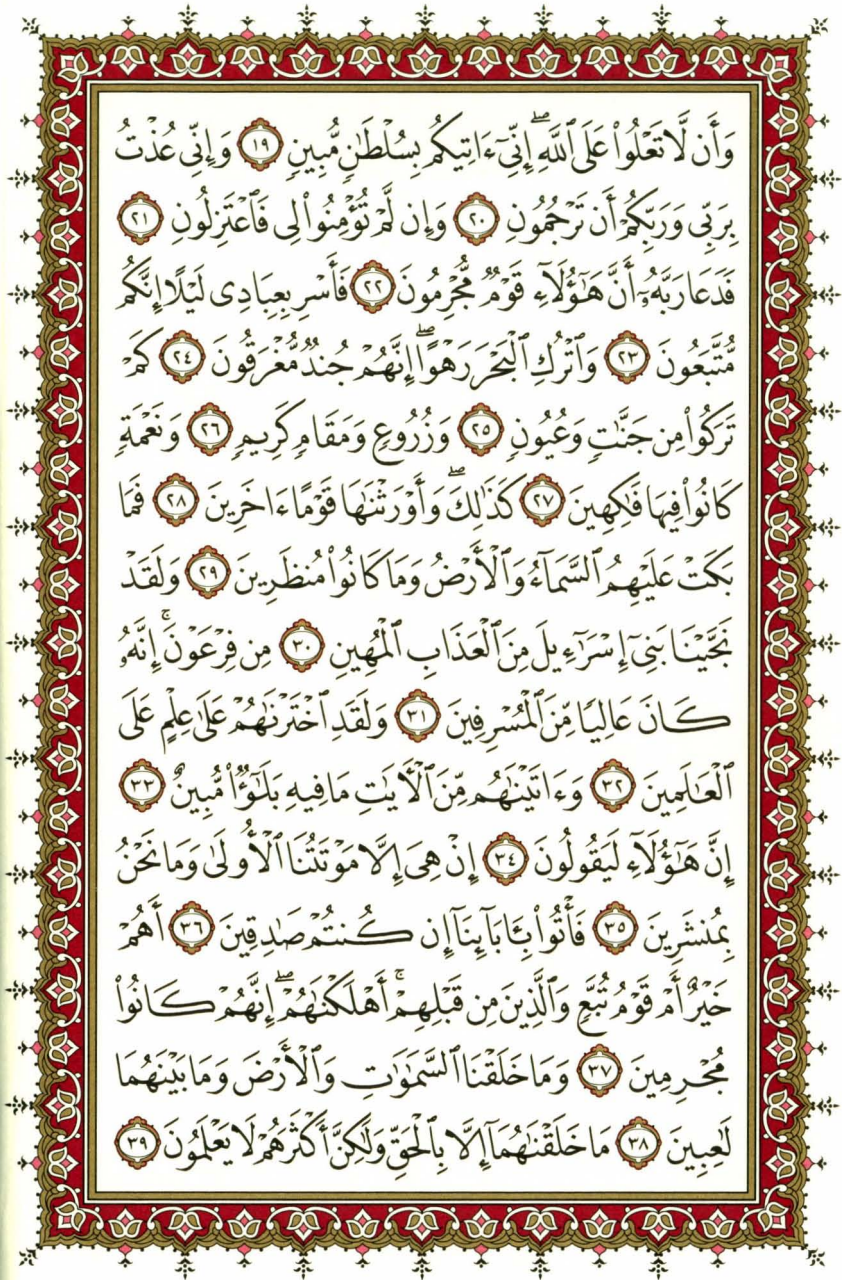 وَأَن لَّا تَعْلُوا۟ عَلَى ٱللَّهِ ۖ إِنِّىٓ ءَاتِيكُم بِسُلْطَـٰنٍ مُّبِينٍ ١٩ وَإِنِّى عُذْتُ
بِرَبِّى وَرَبِّكُمْ أَن تَرْجُمُونِ ٢٠ وَإِن لَّمْ تُؤْمِنُوا۟ لِى فَٱعْتَزِلُونِ ٢١
فَدَعَا رَبَّهُۥٓ أَنَّ هَـٰٓؤُلَآءِ قَوْمٌ مُّجْرِمُونَ ٢٢ فَأَسْرِ بِعِبَادِى لَيْلًا إِنَّكُم
مُّتَّبَعُونَ ٢٣ وَٱتْرُكِ ٱلْبَحْرَ رَهْوًا ۖ إِنَّهُمْ جُندٌ مُّغْرَقُونَ ٢٤ كَمْ
تَرَكُوا۟ مِن جَنَّـٰتٍ وَعُيُونٍ ٢٥ وَزُرُوعٍ وَمَقَامٍ كَرِيمٍ ٢٦ وَنَعْمَةٍ
كَانُوا۟ فِيهَا فَـٰكِهِينَ ٢٧ كَذَٰلِكَ ۖ وَأَوْرَثْنَـٰهَا قَوْمًا ءَاخَرِينَ ٢٨ فَمَا
بَكَتْ عَلَيْهِمُ ٱلسَّمَآءُ وَٱلْأَرْضُ وَمَا كَانُوا۟ مُنظَرِينَ ٢٩ وَلَقَدْ
نَجَّيْنَا بَنِىٓ إِسْرَٰٓءِيلَ مِنَ ٱلْعَذَابِ ٱلْمُهِينِ ٣٠ مِن فِرْعَوْنَ ۚ إِنَّهُۥ
كَانَ عَالِيًا مِّنَ ٱلْمُسْرِفِينَ ٣١ وَلَقَدِ ٱخْتَرْنَـٰهُمْ عَلَىٰ عِلْمٍ عَلَى
ٱلْعَـٰلَمِينَ ٣٢ وَءَاتَيْنَـٰهُم مِّنَ ٱلْـَٔايَـٰتِ مَا فِيهِ بَلَـٰٓؤٌا۟ مُّبِينٌ ٣٣
إِنَّ هَـٰٓؤُلَآءِ لَيَقُولُونَ ٣٤ إِنْ هِىَ إِلَّا مَوْتَتُنَا ٱلْأُولَىٰ وَمَا نَحْنُ
بِمُنشَرِينَ ٣٥ فَأْتُوا۟ بِـَٔابَآئِنَآ إِن كُنتُمْ صَـٰدِقِينَ ٣٦ أَهُمْ
خَيْرٌ أَمْ قَوْمُ تُبَّعٍ وَٱلَّذِينَ مِن قَبْلِهِمْ ۚ أَهْلَكْنَـٰهُمْ ۖ إِنَّهُمْ كَانُوا۟
مُجْرِمِينَ ٣٧ وَمَا خَلَقْنَا ٱلسَّمَـٰوَٰتِ وَٱلْأَرْضَ وَمَا بَيْنَهُمَا
لَـٰعِبِينَ ٣٨ مَا خَلَقْنَـٰهُمَآ إِلَّا بِٱلْحَقِّ وَلَـٰكِنَّ أَكْثَرَهُمْ لَا يَعْلَمُونَ ٣٩